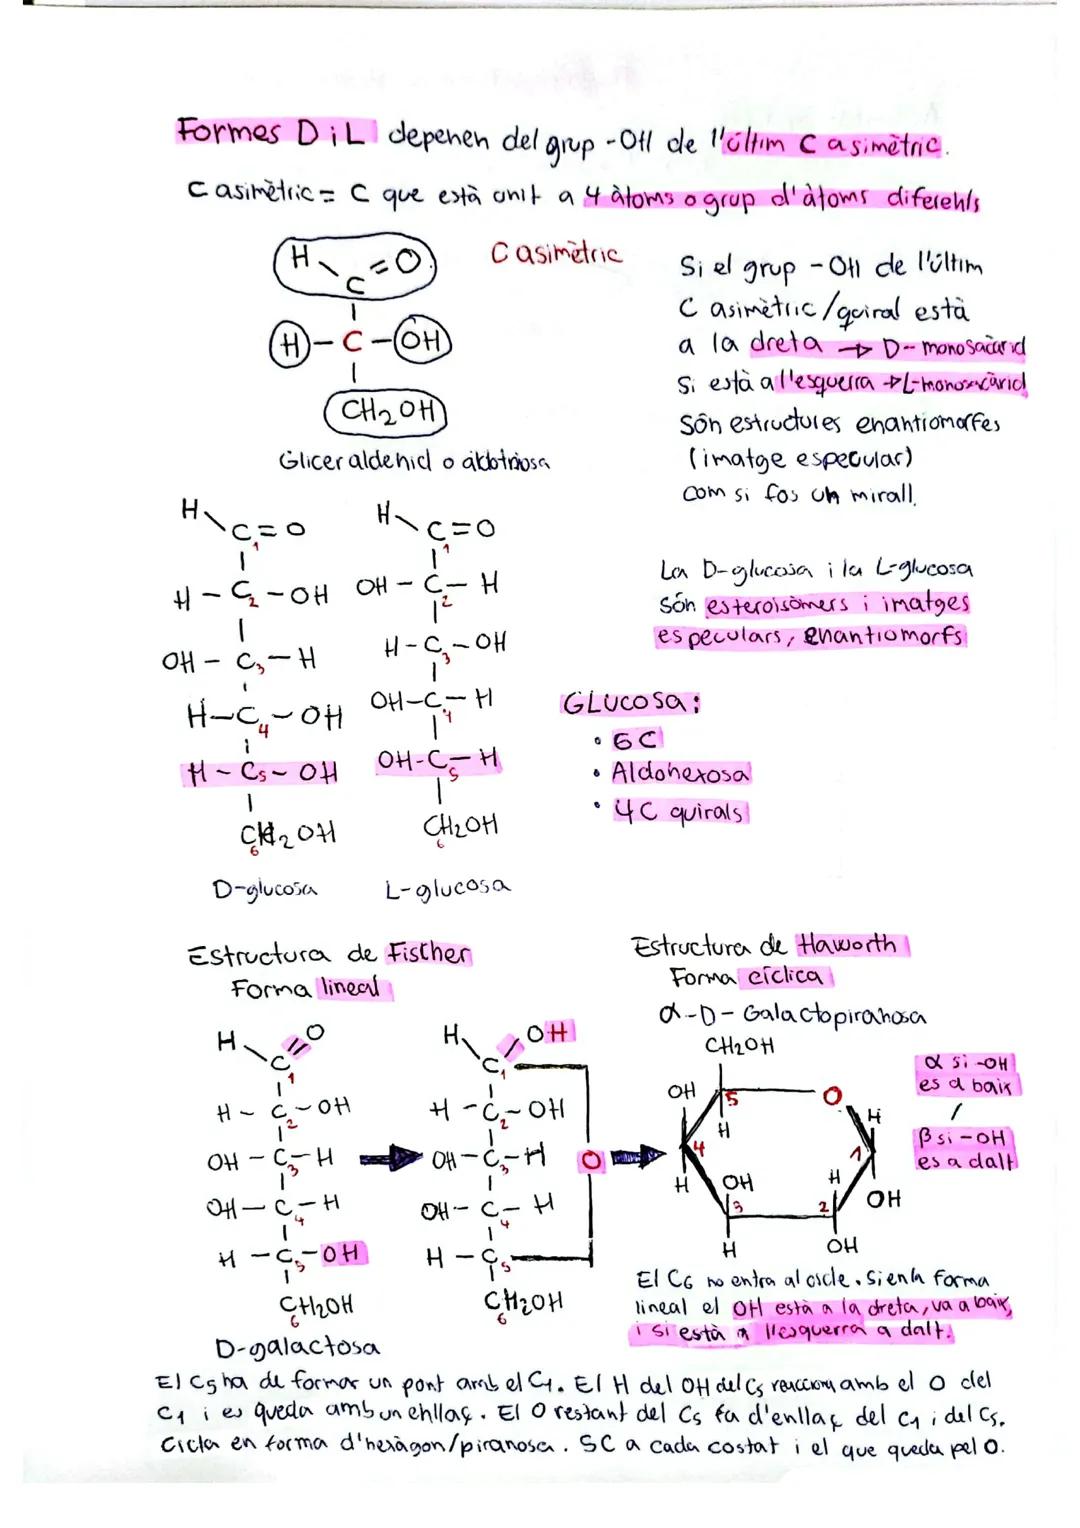 Formes D i L depenen del grup -OH de l'últim C asimètric.
C asimètric = C que està unit a 4 àtoms o grup d'àtoms diferents
H
C=O
H-C-OH
CH2OH
Gliceraldehid o aldotriosa
C asimètric
Si el grup -OH de l'últim
C asimètric/quiral està
a la dreta → D-monosacàrid
Si està a l'esquerra → L-monosacàrid
Són estructures enantiomorfes
(imatge especular)
com si fos un mirall.
H
C=O
1
H-C-OH
2
OH-C-H
3
H-C-OH
4
H-C5-OH
CH2OH
6
D-glucosa
H
C=O
1
OH-C-H
2
H-C-OH
3
OH-C-H
4
OH-C-H
5
CH2OH
6
L-glucosa
La D-glucosa i la L-glucosa
són esteroisòmers i imatges
especulars, enantiomorfs
GLUCOSA:
• 6C
• Aldohexosa
• 4C quirals
Estructura de Fischer
Forma lineal
H
O
C
1
H-C-OH
2
OH-C-H
3
OH-C-H
4
H-C-OH
5
CH2OH
6
D-galactosa
H
OH
C
1
H-C-OH
2
OH-C-H
3
OH-C-H
4
H-C
5
CH2OH
6
O
Estructura de Haworth
Forma cíclica
α-D-Galactopiranosa
CH2OH
OH
5
O
H
H
4
1
H
OH
H
OH
3
2
H
OH
α si -OH
es a baix
/
β si -OH
es a dalt
El C6 no entra al cicle. Si en la forma
lineal el OH està a la dreta, va a baix,
i si està a l'esquerra a dalt.
El C5 ha de formar un pont amb el C1. El H del OH del C5 reacciona amb el O del
C1 i es queda amb un enllaç. El O restant del C5 fa d'enllaç del C1 i del C5.
Cicla en forma d'hexàgon/piranosa. SC a cada costat i el que queda pel O.